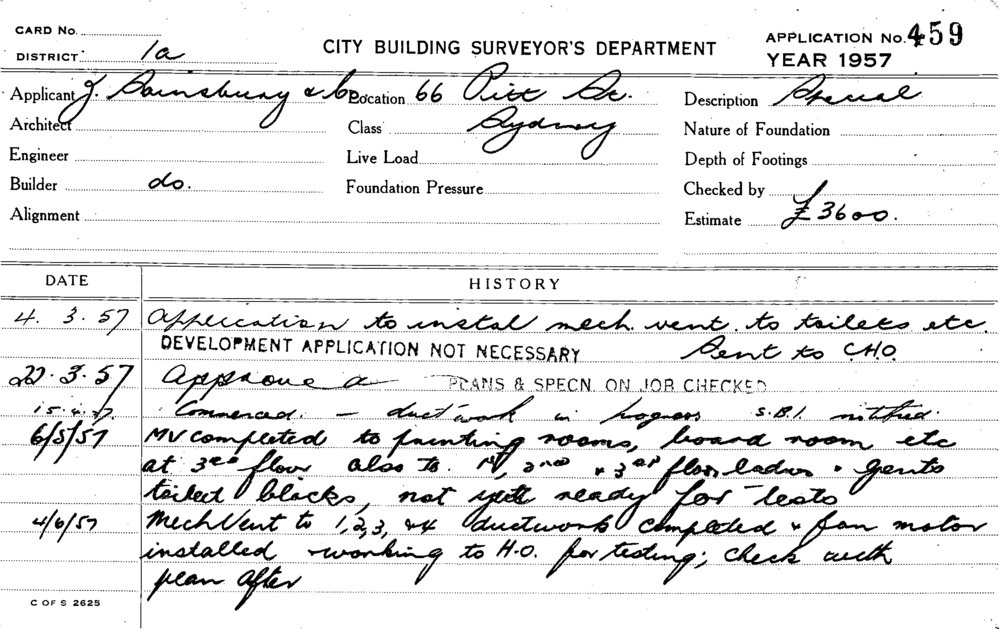 CARD No.
CITY BUILDING SURVEYOR'S DEPARTMENT
APPLICATION No. 459
DISTRICT 1a
YEAR 1957
Applicant J. Sainsbury & Co. Location 66 Pitt St. Description Special
Architect Class Sydney Nature of Foundation
Engineer Live Load Depth of Footings
Builder do. Foundation Pressure Checked by
Alignment Estimate £3600.
DATE HISTORY
4. 3. 57 Application to instal mech. vent. to toilets etc.
DEVELOPMENT APPLICATION NOT NECESSARY Sent to C.H.O.
22.3.57 Approved PLANS & SPECN. ON JOB CHECKED
15.4.57. Commenced. – ductwork in progress S.B.I. notified.
6/5/57 MV completed to printing rooms, board room etc
at 3rd floor also to 1st, 2nd & 3rd floor ladies & gents
toilet blocks, not yet ready for tests
4/6/57 Mech Vent to 1,2,3, &4 ductwork completed & fan motor
installed & working to H.O. for testing; check with
plan after
C OF S 2625